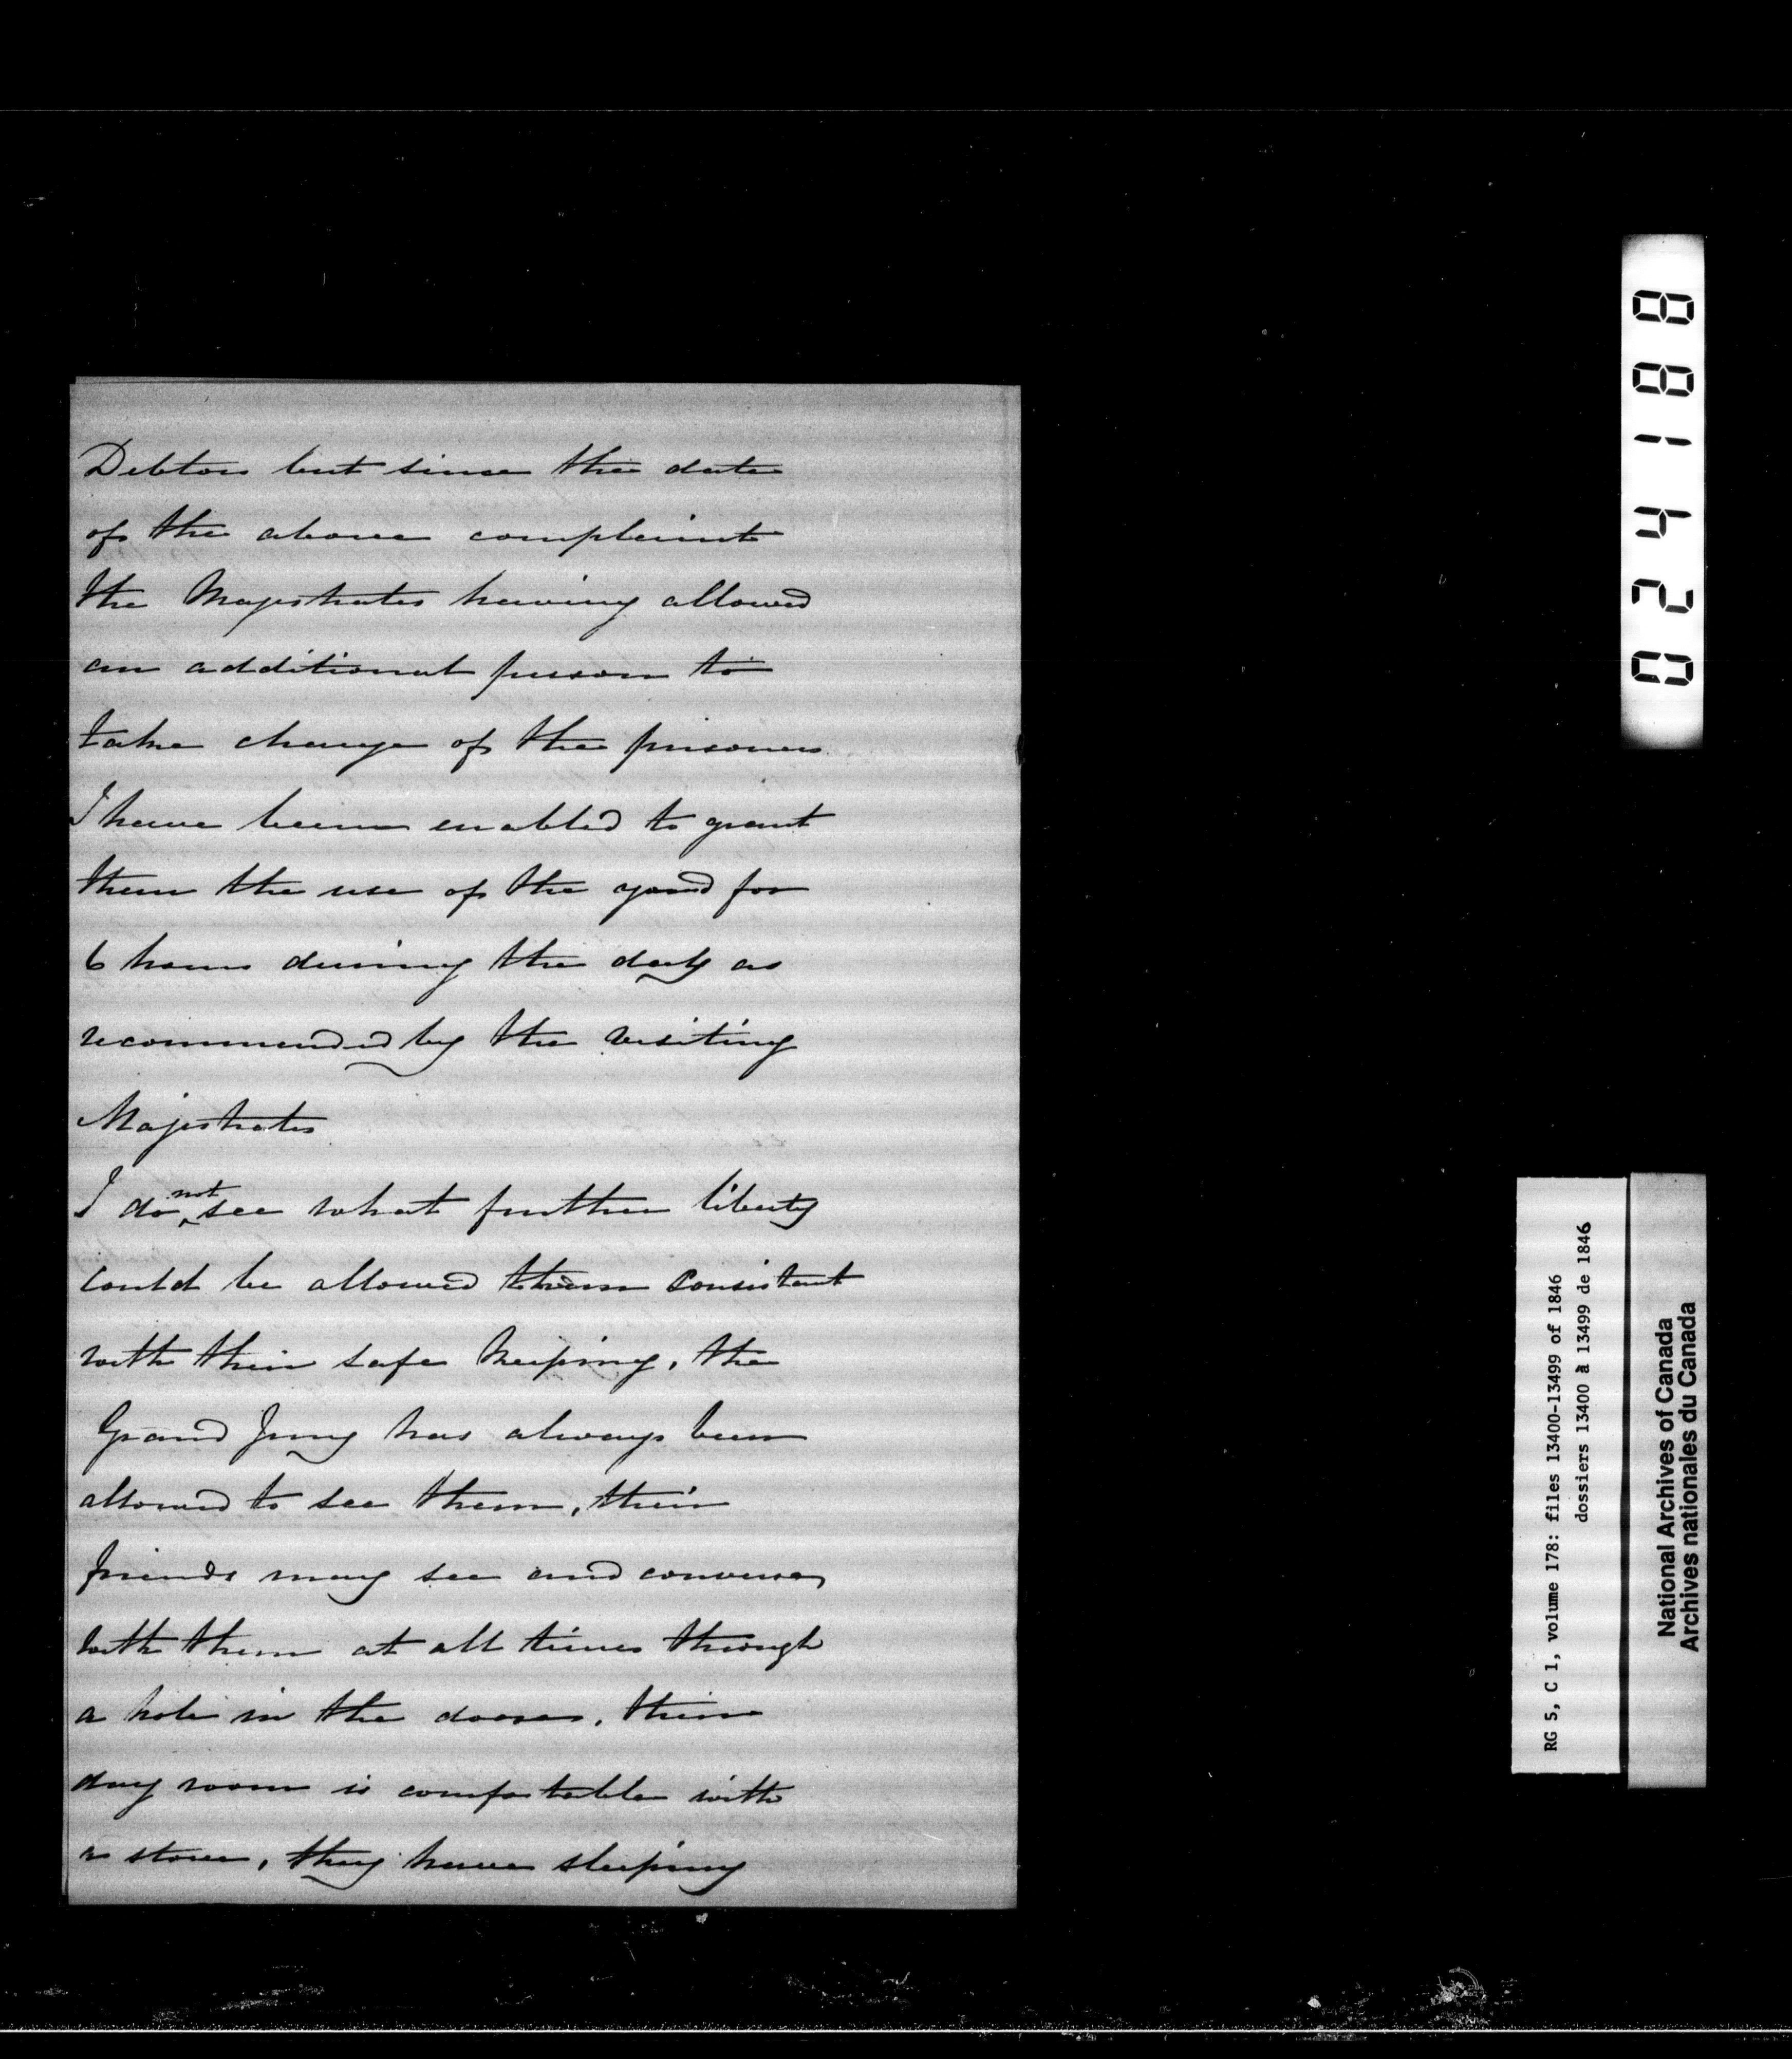 Debtors but since the date
of the above complaint
the Majestrates having allowed
an additional person to
take charge of the prisoners
I have been enabled to grant
them the use of the yard for
6 hours during the day as
recommended by the visiting
Majestrates
I do not see what further liberty
could be allowed them consistant
with their safe keeping, the
Grand Jury has always been
allowed to see them, their
friends may see and converse
with them at all times through
a hole in the doores, their
day room is comfortable with
a stove, they have sleeping
024188
RG 5, C 1, volume 178: files 13400-13499 of 1846
dossiers 13400 à 13499 de 1846
National Archives of Canada
Archives nationales du Canada